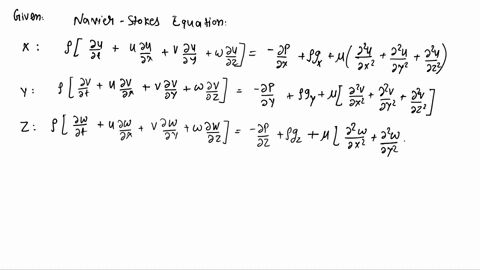 Given: Navier-Stokes Equation:
X: ρ[∂u/∂t + u ∂u/∂x + v ∂u/∂y + ω ∂u/∂z] = -∂P/∂x + ρg_x + μ(∂²u/∂x² + ∂²u/∂y² + ∂²u/∂z²)
Y: ρ[∂v/∂t + u ∂v/∂x + v ∂v/∂y + ω ∂v/∂z] = -∂P/∂y + ρg_y + μ[∂²v/∂x² + ∂²v/∂y² + ∂²v/∂z²]
Z: ρ[∂w/∂t + u ∂w/∂x + v ∂w/∂y + ω ∂w/∂z] = -∂P/∂z + ρg_z + μ[∂²w/∂x² + ∂²w/∂y² .